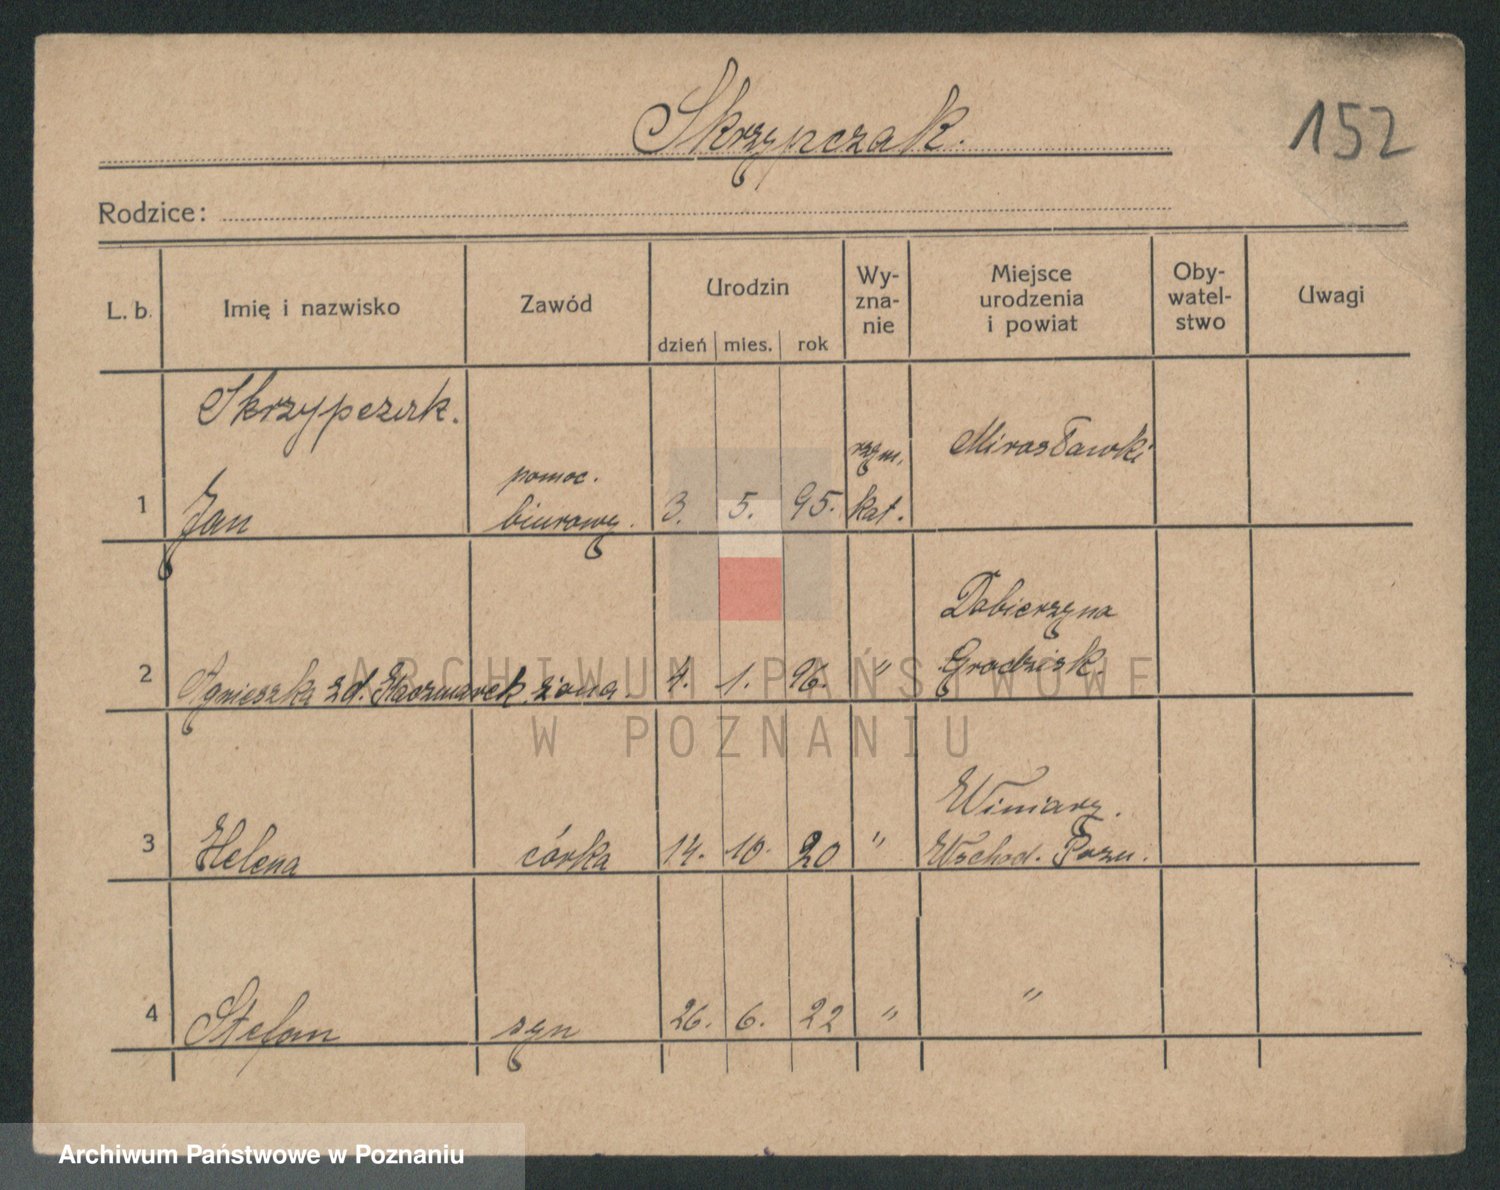 Skrzypczak.
152
Rodzice:
L. b. Imię i nazwisko Zawód Urodzin dzień mies. rok Wy-zna-nie Miejsce urodzenia i powiat Oby-watel-stwo Uwagi
Skrzypczak.
1 Jan pomoc. biurowy. 3. 5. 95. rzym. kat. Mirosławki
2 Agnieszka zd. Kaczmarek żona. 4. 1. 96. " Dobierzyna Grodzisk.
3 Helena córka 14. 10. 20 " Winiary. Wschod. Pozn.
4 Stefan syn 26. 6. 22 " "
ARCHIWUM PAŃSTWOWE
W POZNANIU
Archiwum Państwowe w Poznaniu